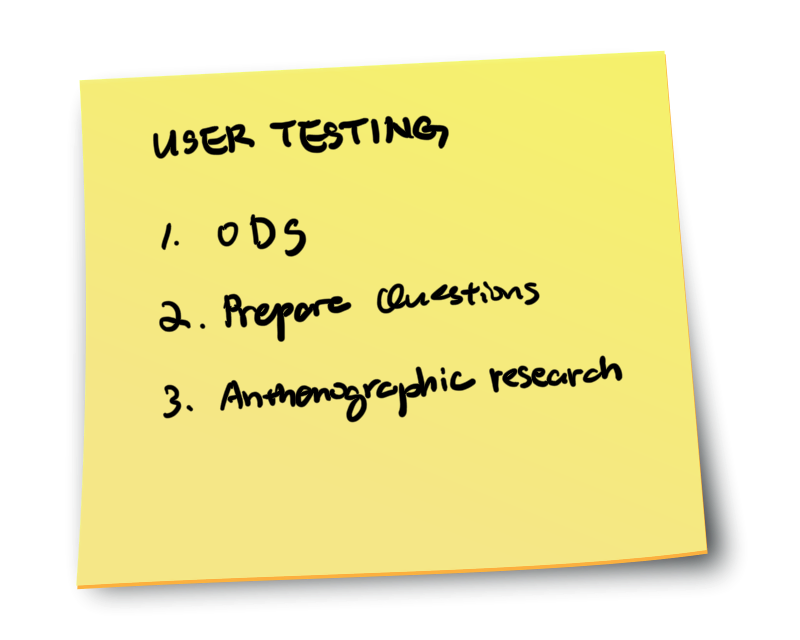 USER TESTING
1. ODS
2. Prepare Questions
3. Anthonographic research